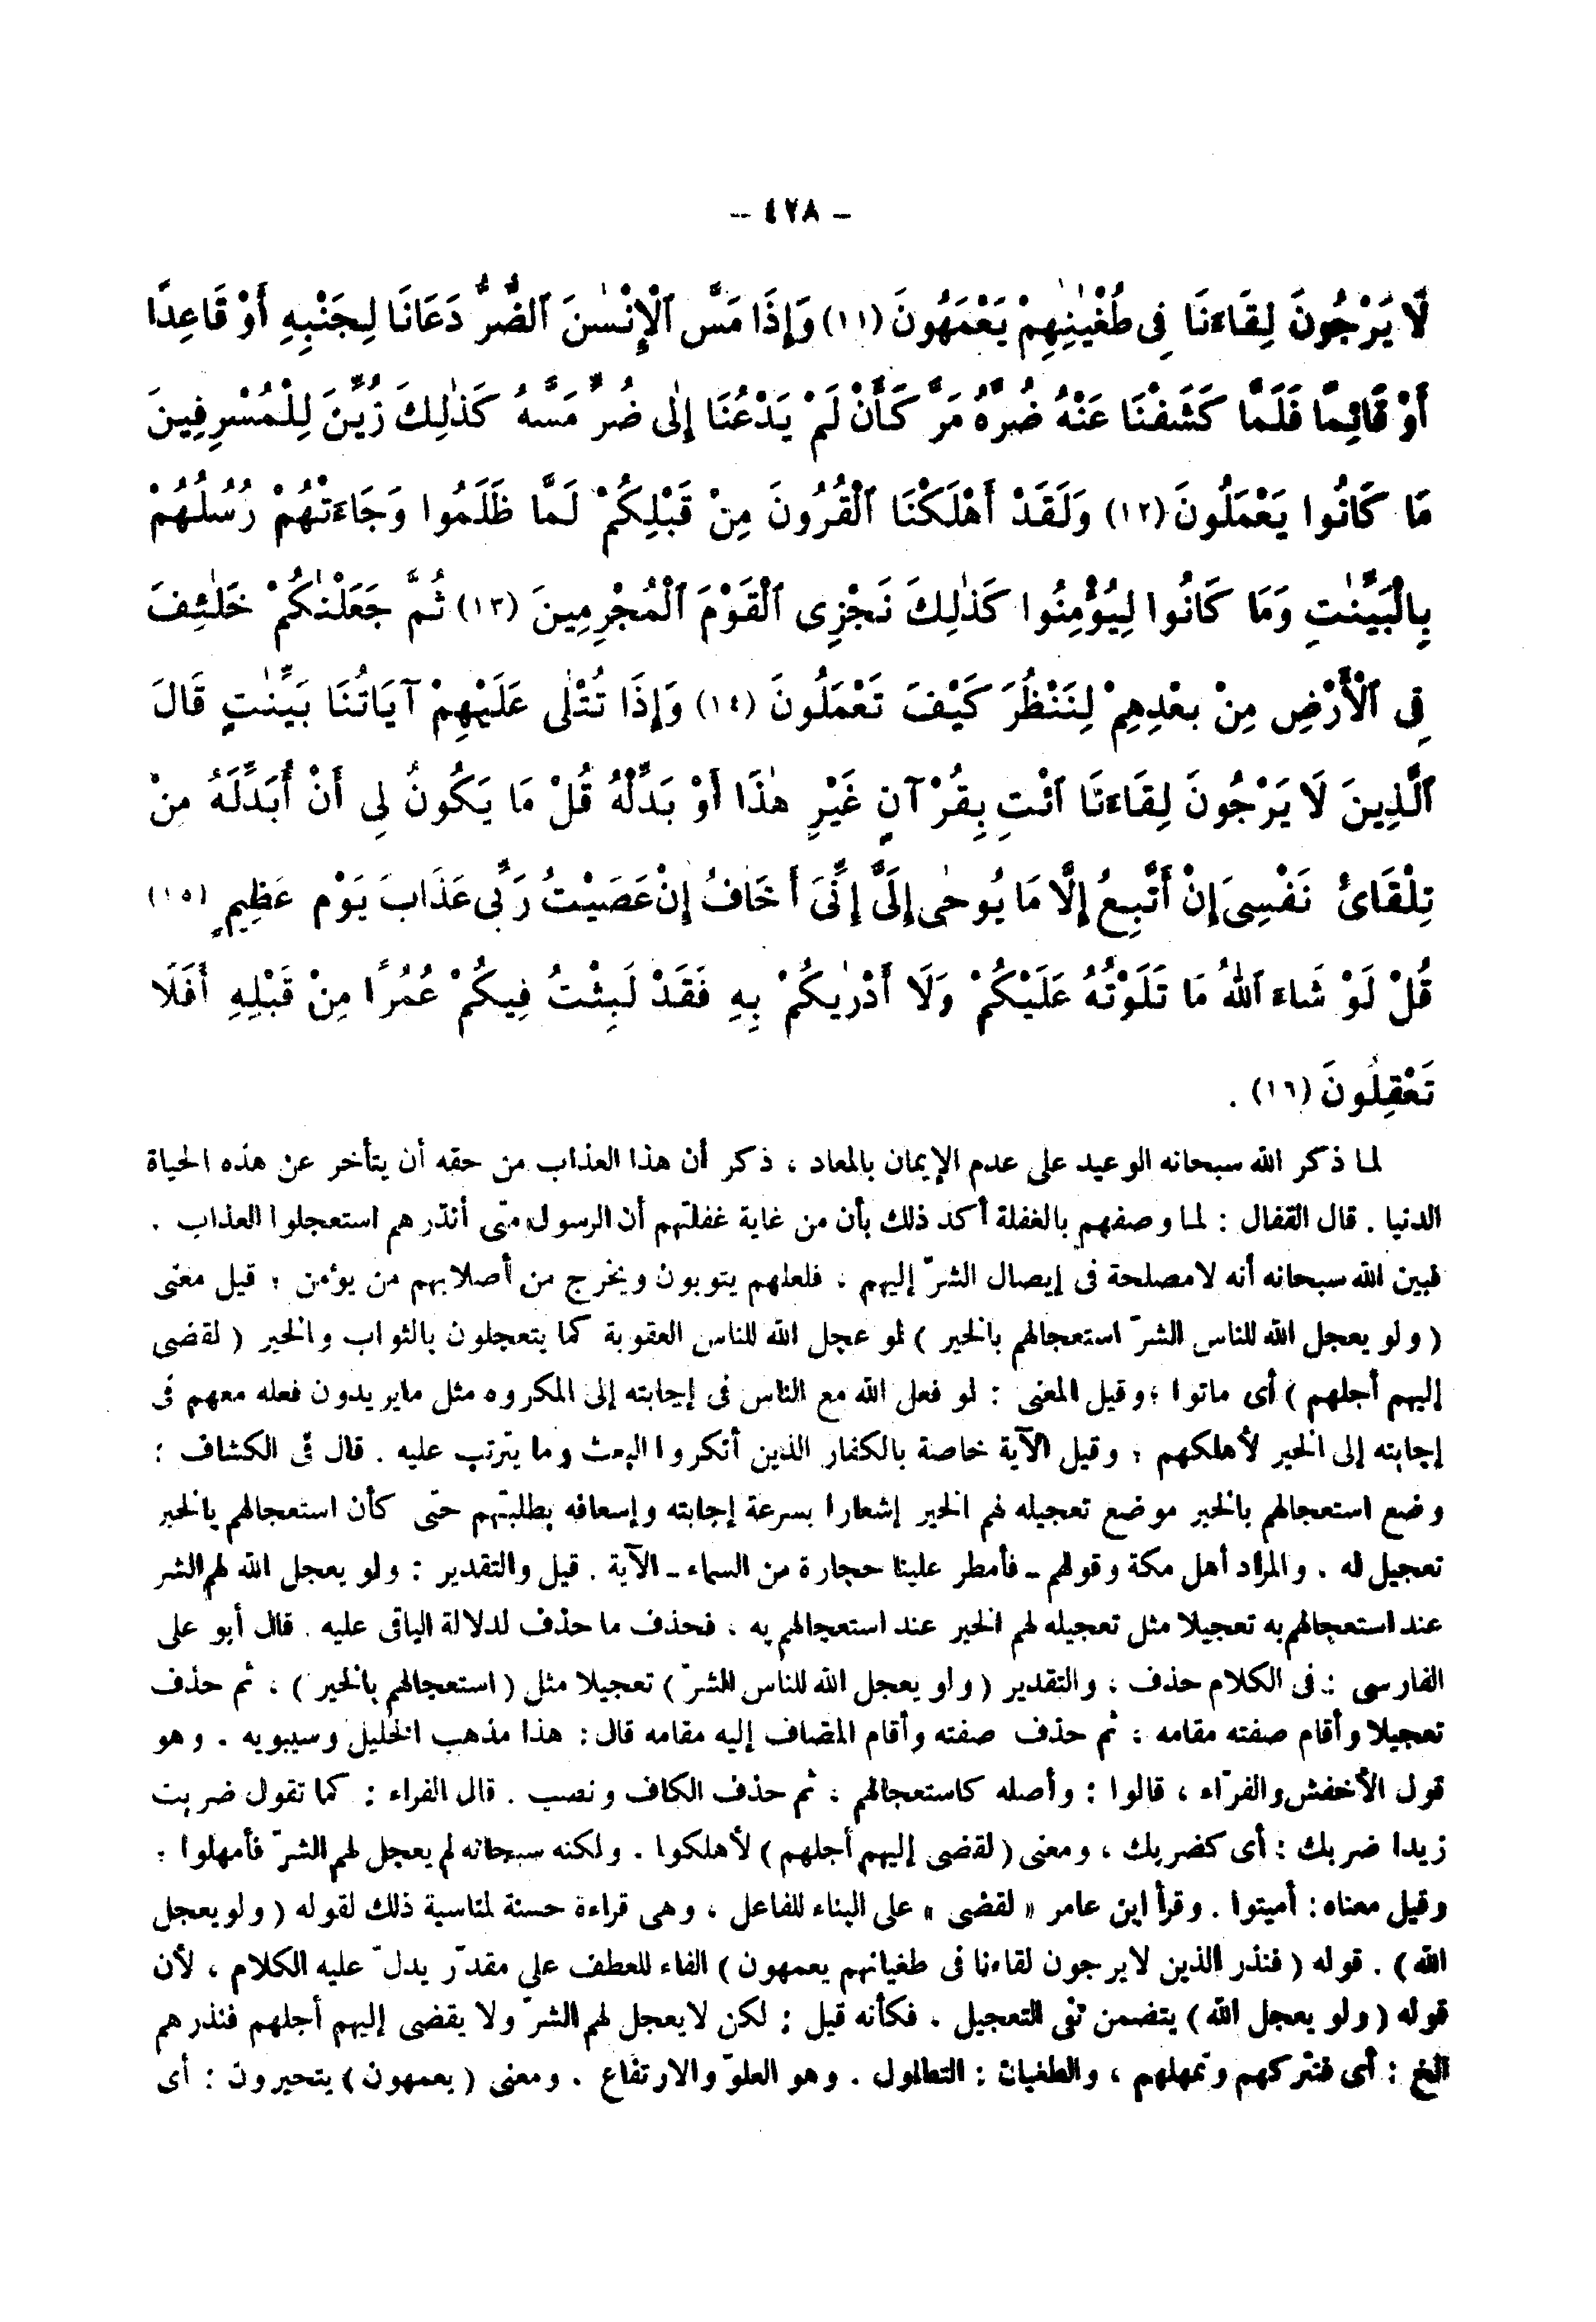 - ٤٢٨ -
لَا يَرْجُونَ لِقَاءَنَا فِى طُغْيٰنِهِمْ يَعْمَهُونَ (١١) وَإِذَا مَسَّ ٱلْإِنْسٰنَ ٱلضُّرُّ دَعَانَا لِجَنْبِهِ أَوْ قَاعِدًا
أَوْ قَائِمًا فَلَمَّا كَشَفْنَا عَنْهُ ضُرَّهُ مَرَّ كَأَنْ لَمْ يَدْعُنَا إِلٰى ضُرٍّ مَسَّهُ كَذٰلِكَ زُيِّنَ لِلْمُسْرِفِينَ
مَا كَانُوا يَعْمَلُونَ (١٢) وَلَقَدْ أَهْلَكْنَا ٱلْقُرُونَ مِنْ قَبْلِكُمْ لَمَّا ظَلَمُوا وَجَاءَتْهُمْ رُسُلُهُمْ
بِالْبَيِّنٰتِ وَمَا كَانُوا لِيُؤْمِنُوا كَذٰلِكَ نَجْزِى ٱلْقَوْمَ ٱلْمُجْرِمِينَ (١٣) ثُمَّ جَعَلْنٰكُمْ خَلٰئِفَ
فِى ٱلْأَرْضِ مِنْ بَعْدِهِمْ لِنَنْظُرَ كَيْفَ تَعْمَلُونَ (١٤) وَإِذَا تُتْلٰى عَلَيْهِمْ آيَاتُنَا بَيِّنٰتٍ قَالَ
ٱلَّذِينَ لَا يَرْجُونَ لِقَاءَنَا ٱئْتِ بِقُرْآنٍ غَيْرِ هٰذَا أَوْ بَدِّلْهُ قُلْ مَا يَكُونُ لِى أَنْ أُبَدِّلَهُ مِنْ
تِلْقَائِ نَفْسِى إِنْ أَتَّبِعُ إِلَّا مَا يُوحٰى إِلَىَّ إِنِّى أَخَافُ إِنْ عَصَيْتُ رَبِّى عَذَابَ يَوْمٍ عَظِيمٍ (١٥)
قُلْ لَوْ شَاءَ ٱللهُ مَا تَلَوْتُهُ عَلَيْكُمْ وَلَا أَدْرٰيكُمْ بِهِ فَقَدْ لَبِثْتُ فِيكُمْ عُمُرًا مِنْ قَبْلِهِ أَفَلَا
تَعْقِلُونَ (١٦) .
لما ذكر الله سبحانه الوعيد على عدم الإيمان بالمعاد ، ذكر أن هذا العذاب من حقه أن يتأخر عن هذه الحياة
الدنيا . قال القفال : لما وصفهم بالغفلة أكد ذلك بأن من غاية غفلتهم أن الرسول متى أنذرهم استعجلوا العذاب .
فبين الله سبحانه أنه لا مصلحة فى إيصال الشرّ إليهم ، فلعلهم يتوبون ويخرج من أصلابهم من يؤمن ؛ قيل معنى
( ولو يعجل الله للناس الشرّ استعجالهم بالخير ) لو عجل الله للناس العقوبة كما يتعجلون بالثواب والخير ( لقضى
إليهم أجلهم ) أى ماتوا ؛ وقيل المعنى : لو فعل الله مع الناس فى إجابته إلى المكروه مثل مايريدون فعله معهم فى
إجابته إلى الخير لأهلكهم ؛ وقيل الآية خاصة بالكفار الذين أنكروا البعث وما يترتب عليه . قال فى الكشاف :
وضع استعجالهم بالخير موضع تعجيله لهم الخير إشعارا بسرعة إجابته وإسعافه بطلبتهم حتى كأن استعجالهم بالخير
تعجيل له . والمراد أهل مكة وقولهم ـ فأمطر علينا حجارة من السماء ـ الآية . قيل والتقدير : ولو يعجل الله لهم الشر
عند استعجالهم به تعجيلا مثل تعجيله لهم الخير عند استعجالهم به ، فحذف ما حذف لدلالة الباقى عليه . قال أبو على
الفارسى : فى الكلام حذف ، والتقدير ( ولو يعجل الله للناس الشرّ ) تعجيلا مثل ( استعجالهم بالخير ) ، ثم حذف
تعجيلا وأقام صفته مقامه ، ثم حذف صفته وأقام المضاف إليه مقامه قال : هذا مذهب الخليل وسيبويه . وهو
قول الأخفش والفرّاء ، قالوا : وأصله كاستعجالهم ، ثم حذف الكاف ونصب . قال الفراء : كما تقول ضربت
زيدا ضربك : أى كضربك ، ومعنى ( لقضى إليهم أجلهم ) لأهلكوا . ولكنه سبحانه لم يعجل لهم الشرّ فأمهلوا ؛
وقيل معناه : أميتوا . وقرأ ابن عامر « لقضى » على البناء للفاعل ، وهى قراءة حسنة لمناسبة ذلك لقوله ( ولو يعجل
الله ) . قوله ( فنذر الذين لا يرجون لقاءنا فى طغيانهم يعمهون ) الفاء للعطف على مقدّر يدلّ عليه الكلام ، لأن
قوله ( ولو يعجل الله ) يتضمن نفى التعجيل . فكأنه قيل : لكن لا يعجل لهم الشرّ ولا يقضى إليهم أجلهم فنذرهم
الخ : أى فنتركهم ونمهلهم ، والطغيان : التطاول . وهو العلوّ والارتفاع . ومعنى ( يعمهون ) يتحيرون : أى